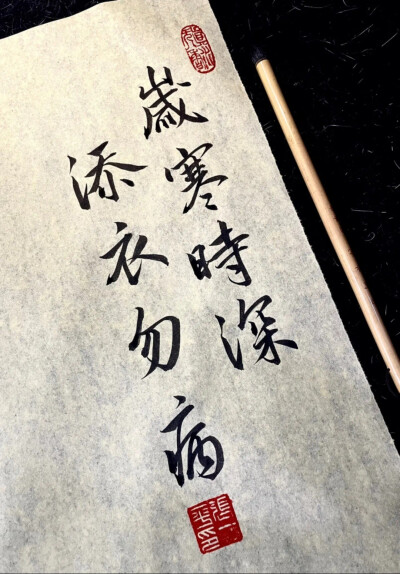 歲寒時深
添衣勿病